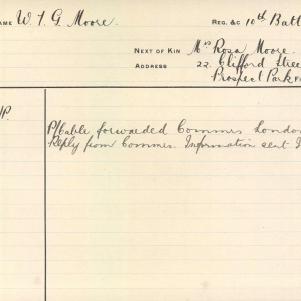 NAME W. T. G. Moore. REG. &C 10th Batt
NEXT OF KIN Mrs Rosa Moore.
ADDRESS 22 Clifford Stree
Prospect Park
P/Cable forwarded Commrs London
Reply from Commrs. Information sent